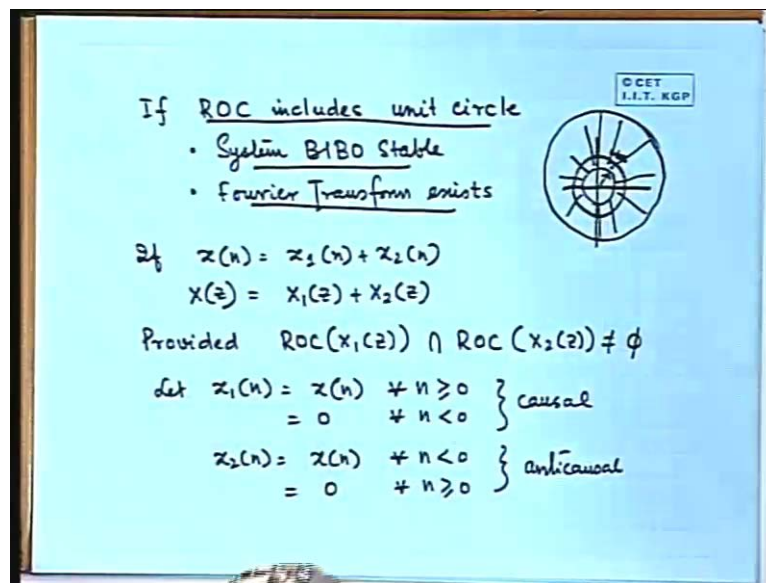 © CET
I.I.T. KGP
If ROC includes unit circle
• System BIBO Stable
• Fourier Transform exists
If x(n) = x₁(n) + x₂(n)
X(z) = X₁(z) + X₂(z)
Provided ROC(X₁(z)) ∩ ROC(X₂(z)) ≠ ϕ
Let x₁(n) = x(n) ∀ n ≥ 0 } causal
= 0 ∀ n < 0
x₂(n) = x(n) ∀ n < 0 } anticausal
= 0 ∀ n ≥ 0